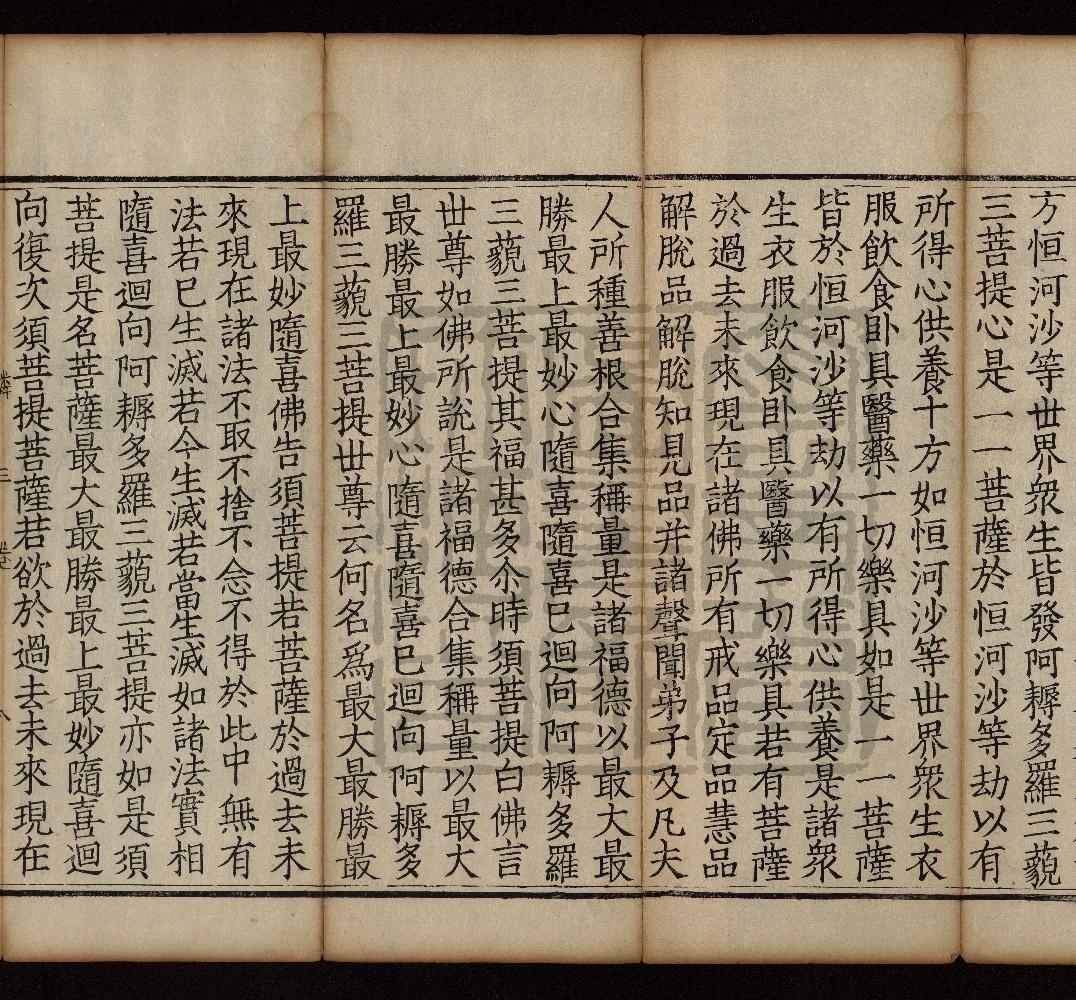 方恒河沙等世界衆生皆發阿耨多羅三藐
三菩提心是一一菩薩於恒河沙等劫以有
所得心供養十方如恒河沙等世界衆生衣
服飲食卧具醫藥一切樂具如是一一菩薩
皆於恒河沙等劫以有所得心供養是諸衆
生衣服飲食卧具醫藥一切樂具若有菩薩
於過去未來現在諸佛所有戒品定品慧品
解脫品解脫知見品并諸聲聞弟子及凡夫
人所種善根合集稱量是諸福德以最大最
勝最上最妙心隨喜隨喜已迴向阿耨多羅
三藐三菩提其福甚多尒時須菩提白佛言
世尊如佛所說是諸福德合集稱量以最大
最勝最上最妙心隨喜隨喜已迴向阿耨多
羅三藐三菩提世尊云何名爲最大最勝最
上最妙隨喜佛告須菩提若菩薩於過去未
來現在諸法不取不捨不念不得於此中無有
法若已生滅若今生滅若當生滅如諸法實相
隨喜迴向阿耨多羅三藐三菩提亦如是須
菩提是名菩薩最大最勝最上最妙隨喜迴
向復次須菩提菩薩若欲於過去未來現在